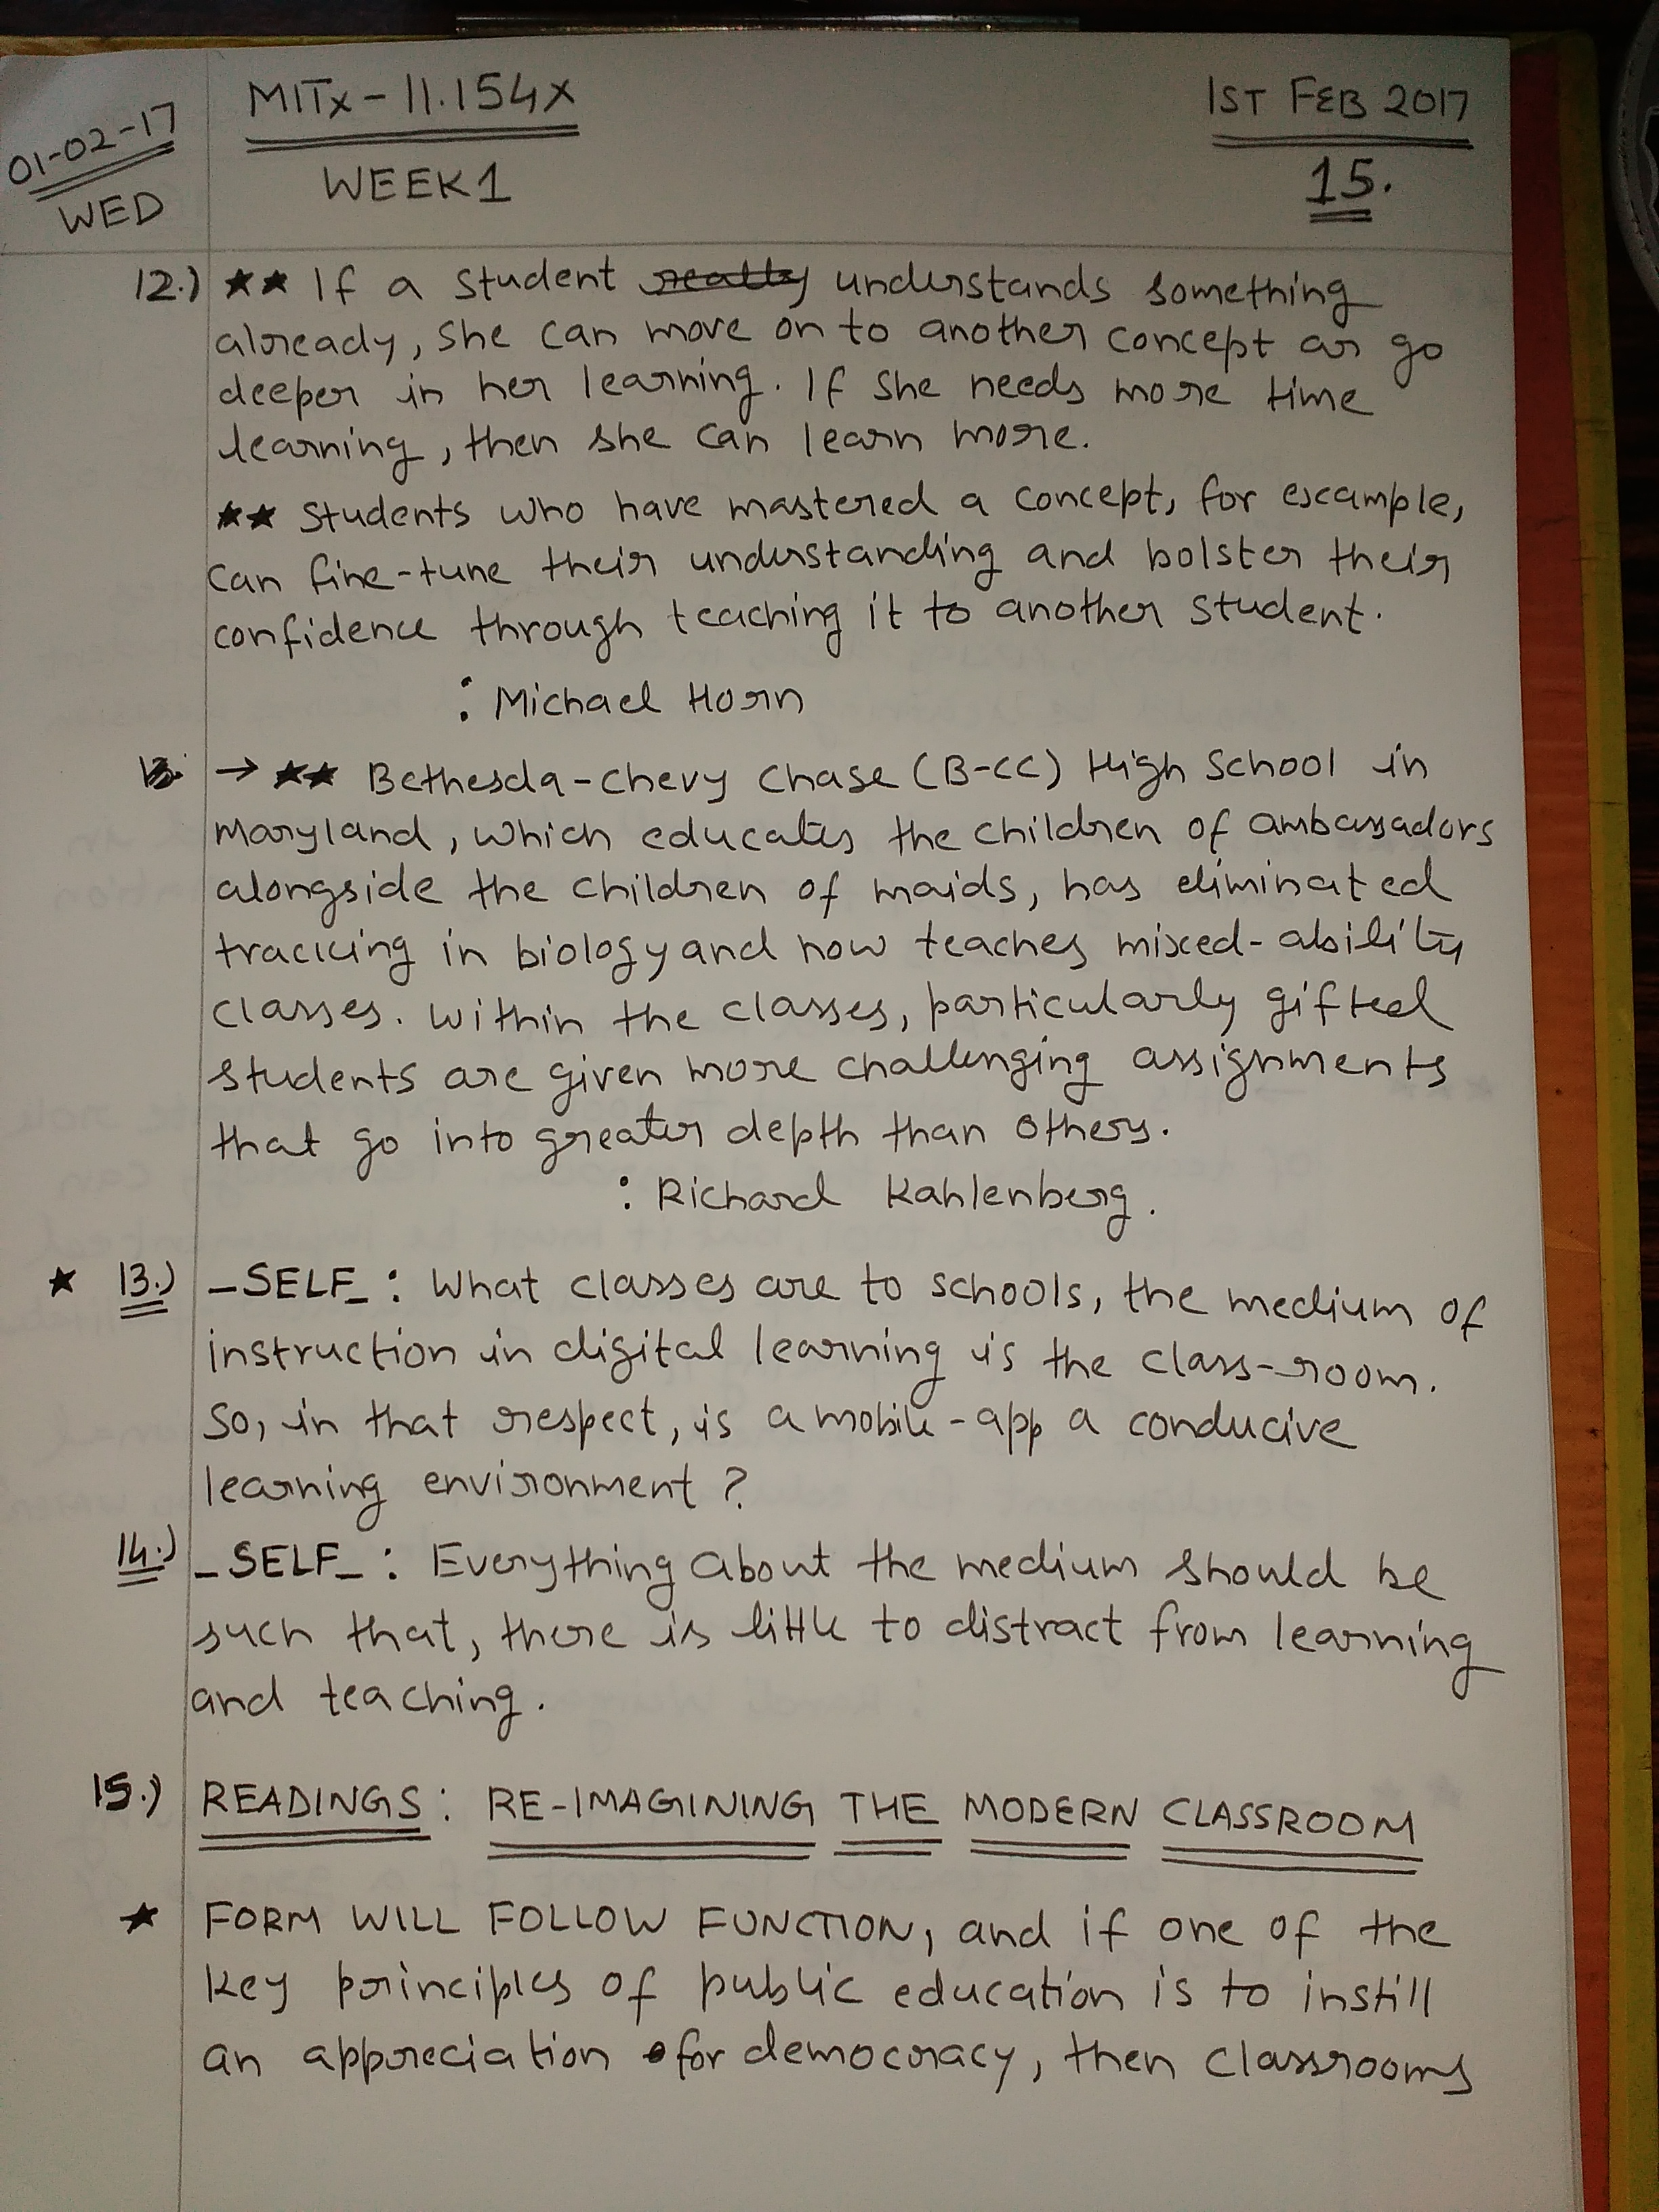 01-02-17
WED
MITx - 11.154x
WEEK 1
1ST FEB 2017
15.
12.) ★★ If a student really understands something
already, she can move on to another concept or go
deeper in her learning. If she needs more time
learning, then she can learn more.
★★ Students who have mastered a concept, for example,
can fine-tune their understanding and bolster their
confidence through teaching it to another student.
: Michael Horn
→ ★★ Bethesda-Chevy Chase (B-CC) High School in
Maryland, which educates the children of ambassadors
alongside the children of maids, has eliminated
tracking in biology and now teaches mixed-ability
classes. Within the classes, particularly gifted
students are given more challenging assignments
that go into greater depth than others.
: Richard Kahlenberg.
★ 13.) _SELF_ : What classes are to schools, the medium of
instruction in digital learning is the class-room.
So, in that respect, is a mobile-app a conducive
learning environment?
14.) _SELF_ : Everything about the medium should be
such that, there is little to distract from learning
and teaching.
15.) READINGS : RE-IMAGINING THE MODERN CLASSROOM
★ FORM WILL FOLLOW FUNCTION, and if one of the
key principles of public education is to instill
an appreciation for democracy, then classrooms